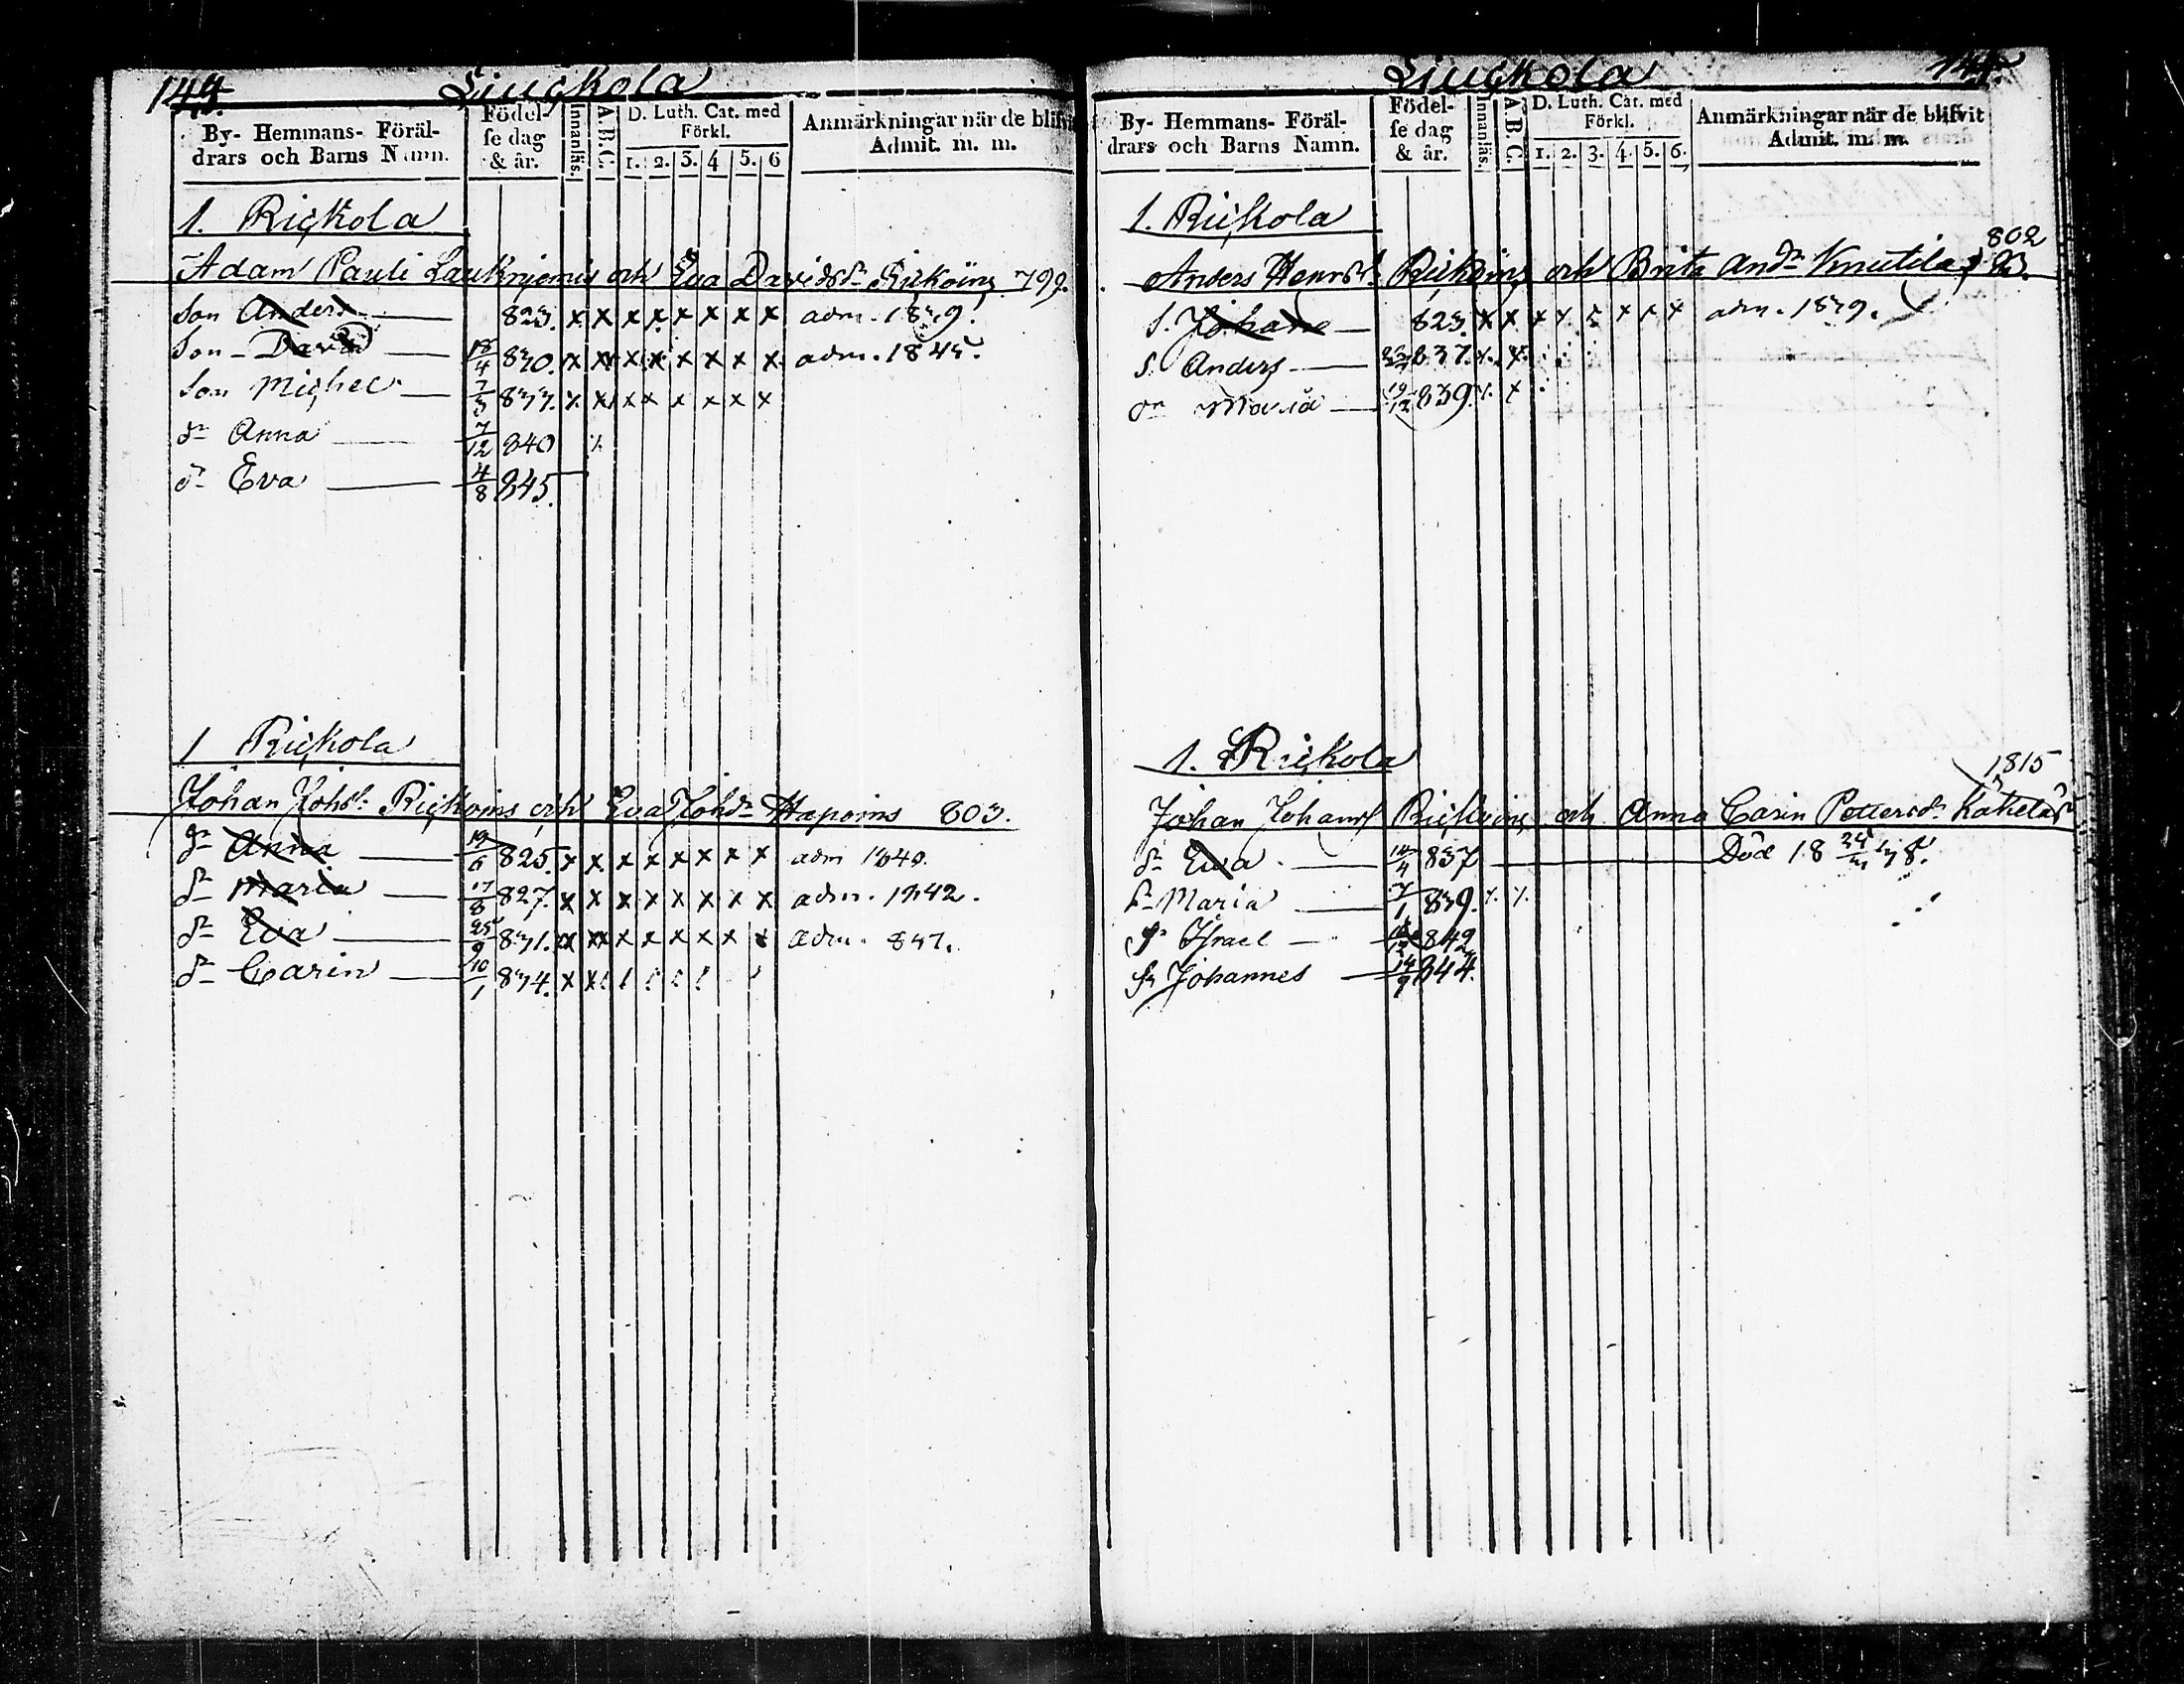 144.
Liugkola
By- Hemmans- Föräl-
drars och Barns Namn.
Födel-
se dag
& år.
Innanläs.
A.B.C.
D. Luth. Cat. med
Förkl.
1. 2. 3. 4 5. 6
Anmärkningar när de blifvit
Admit. m. m.
1. Rickola
Adam Pauli och Eva Davidsdr 799.
Son Anders 823. x x x x x x x x adm. 1839.
Son David 18/4 830. x x x x x x x x adm. 1845.
Son Michel 7/3 833. x x x x x x x x
dr Anna 7/12 840
dr Eva 4/8 845.
1 Rickola
Johan Johss: och Eva Johsdr Haponis 803.
dr Anna 19/6 825. x x x x x x x x adm 1840.
dr Maria 17/8 827. x x x x x x x x adm. 1842.
dr Eva 25/9 831. x x x x x x x x adm. 847.
dr Carin 10/1 834. x x
Liugkola
By- Hemmans- Föräl-
drars och Barns Namn.
Födel-
se dag
& år.
Innanläs.
A.B.C.
D. Luth. Cat. med
Förkl.
1. 2. 3. 4. 5. 6.
Anmärkningar när de blifvit
Admit. m. m.
1. Rickola
802
Anders Henrss. och Brita Andr Knutila
s. Johan 823. x x x x x x x adm. 1839.
s. Anders 837.
dr Maria 19/12 839
1. Rickola
1815
Johan Johanss och Anna Carin Pettersdr
dr Eva 14/4 837 Död
dr Maria 7/1 839.
sn Israel 842
sn Johannes 14/9 844.